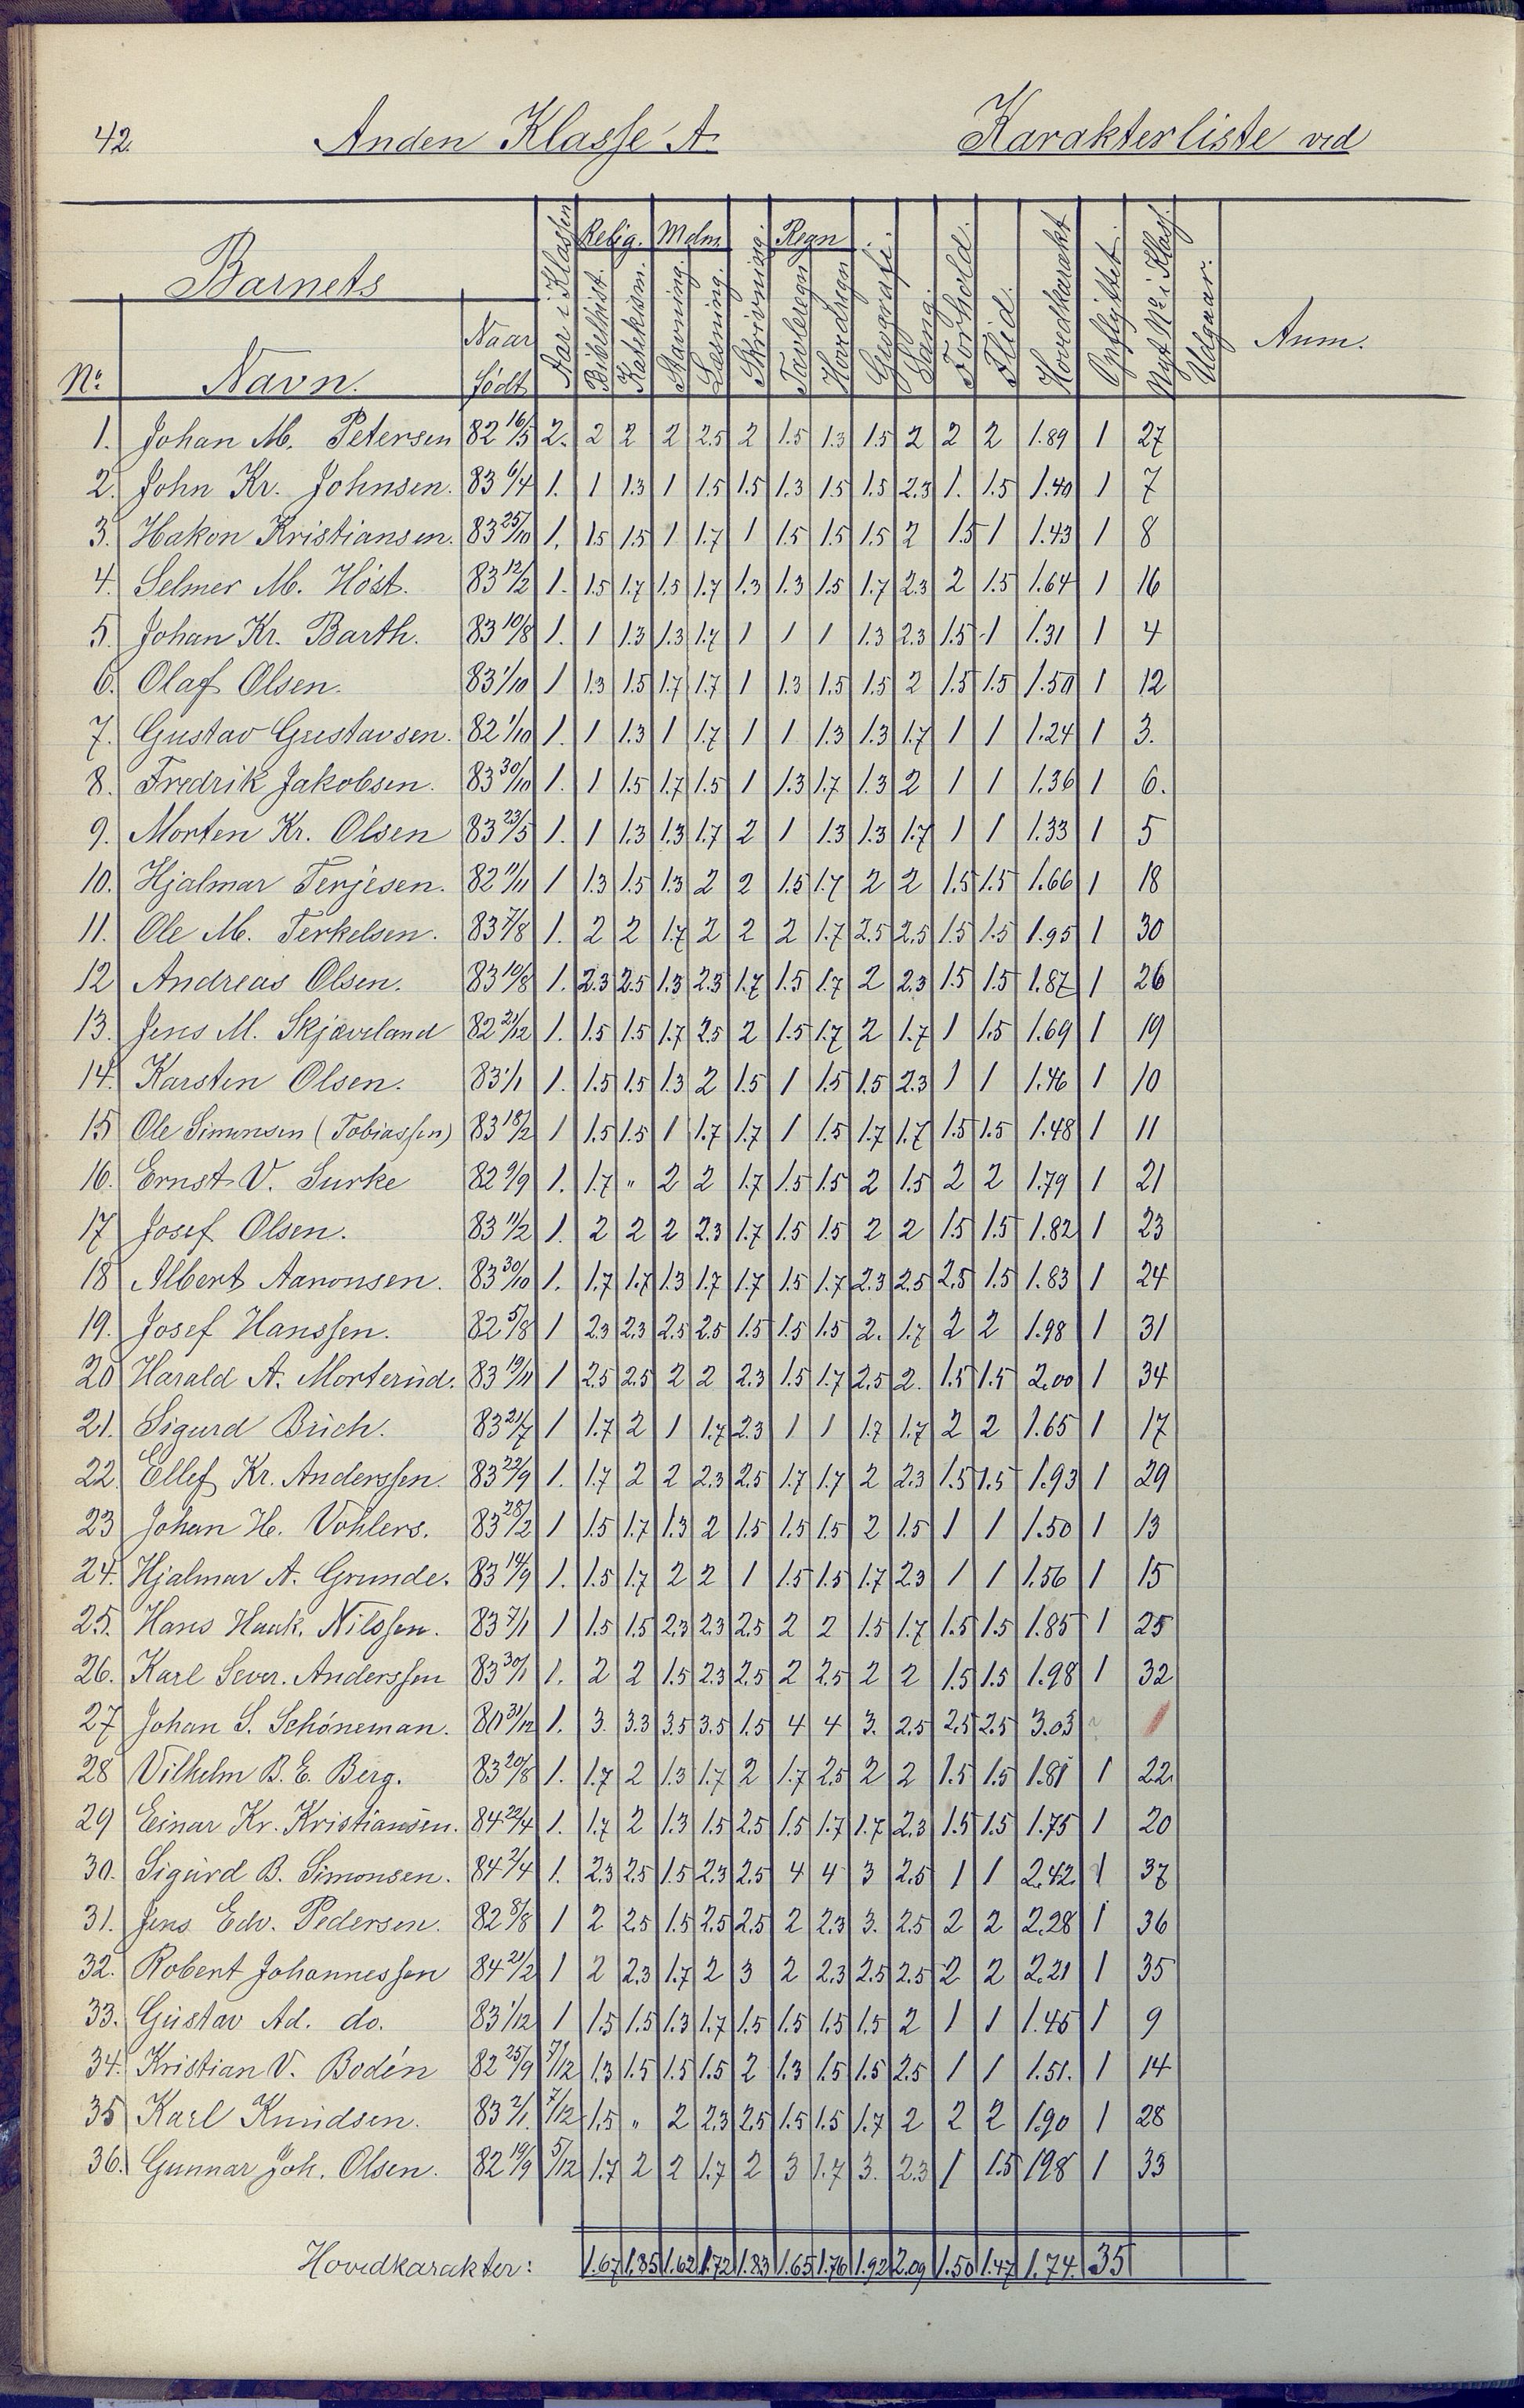 42.
Anden Klasse A. Karakterliste ved
Barnets Aar i Klassen Relig. Mdm. Skrivning. Regn Geografi. Sang. Forhold. Flid. Hovedkarakt Opflyttet. Nyt No i Klass. Udgaar. Anm.
No Navn. Naar født Bibelhist. Katekism. Stavning. Læsning. Tavleregn Hovedregn
1. Johan M. Petersen 82 16/5 2. 2 2 2 2.5 2 1.5 1.3 1.5 2 2 2 1.89 1 27
2. John Kr. Johnsen. 83 6/4 1. 1 1.3 1 1.5 1.5 1.3 1.5 1.5 2.3 1. 1.5 1.40 1 7
3. Hakon Kristiansen. 83 25/10 1. 1.5 1.5 1 1.7 1 1.5 1.5 1.5 2 1.5 1 1.43 1 8
4. Selmer M. Höst. 83 12/2 1. 1.5 1.7 1.5 1.7 1.3 1.3 1.5 1.7 2.3 2 1.5 1.64 1 16
5. Johan Kr. Barth. 83 10/8 1. 1 1.3 1.3 1.7 1 1 1 1.3 2.3 1.5 1 1.31 1 4
6. Olaf Olsen. 83 1/10 1 1.3 1.5 1.7 1.7 1 1.3 1.5 1.5 2 1.5 1.5 1.50 1 12
7. Gustav Gustavsen. 82 1/10 1. 1 1.3 1 1.7 1 1 1.3 1.3 1.7 1 1 1.24 1 3.
8. Fredrik Jakobsen. 83 30/10 1. 1 1.5 1.7 1.5 1 1.3 1.7 1.3 2 1 1 1.36 1 6.
9. Morten Kr. Olsen 83 23/5 1. 1 1.3 1.3 1.7 2 1 1.3 1.3 1.7 1 1 1.33 1 5
10. Hjalmar Terjesen. 82 11/11 1 1.3 1.5 1.3 2 2 1.5 1.7 2 2 1.5 1.5 1.66 1 18
11. Ole M. Terkelsen. 83 7/8 1. 2 2 1.7 2 2 2 1.7 2.5 2.5 1.5 1.5 1.95 1 30
12 Andreas Olsen. 83 10/8 1. 2.3 2.5 1.3 2.3 1.7 1.5 1.7 2 2.3 1.5 1.5 1.87 1 26
13. Jens M. Skjæveland 82 21/12 1. 1.5 1.5 1.7 2.5 2 1.5 1.7 2 1.7 1 1.5 1.69 1 19
14. Karsten Olsen. 83 1/1 1. 1.5 1.5 1.3 2 1.5 1 1.5 1.5 2.3 1 1 1.46 1 10
15 Ole Simonsen (Tobiassen) 83 18/2 1 1.5 1.5 1 1.7 1.7 1 1.5 1.7 1.7 1.5 1.5 1.48 1 11
16. Ernst V. Surke 82 9/9 1. 1.7 " 2 2 1.7 1.5 1.5 2 1.5 2 2 1.79 1 21
17 Josef Olsen. 83 11/2 1. 2 2 2 2.3 1.7 1.5 1.5 2 2 1.5 1.5 1.82 1 23
18 Albert Aanonsen. 83 30/10 1. 1.7 1.7 1.3 1.7 1.7 1.5 1.7 2.3 2.5 2.5 1.5 1.83 1 24
19. Josef Hanssen. 82 5/8 1 2.3 2.3 2.5 2.5 1.5 1.5 1.5 2. 1.7 2 2 1.98 1 31
20 Harald A. Morterud. 83 19/11 1 2.5 2.5 2 2 2.3 1.5 1.7 2.5 2. 1.5 1.5 2.00 1 34
21. Sigurd Buch. 83 21/7 1 1.7 2 1 1.7 2.3 1 1 1.7 1.7 2 2 1.65 1 17
22. Ellef Kr. Anderssen. 83 22/9 1. 1.7 2 2 2.3 2.5 1.7 1.7 2 2.3 1.5 1.5 1.93 1 29
23 Johan H. Vohlers. 83 28/2 1 1.5 1.7 1.3 2 1.5 1.5 1.5 2 1.5 1 1 1.50 1 13
24. Hjalmar A. Grunde. 83 14/9 1. 1.5 1.7 2 2 1 1.5 1.5 1.7 2.3 1 1 1.56 1 15
25. Hans Hauk. Nilssen. 83 7/1 1 1.5 1.5 2.3 2.3 2.5 2 2 1.5 1.7 1.5 1.5 1.85 1 25
26. Karl Sever. Anderssen 83 30/1 1. 2 2 1.5 2.3 2.5 2 2.5 2 2 1.5 1.5 1.98 1 32
27 Johan S. Schöneman. 80 31/12 1. 3. 3.3 3.5 3.5 1.5 4 4 3. 2.5 2.5 2.5 3.03 1
28 Vilhelm B. E. Berg. 83 20/8 1. 1.7 2 1.3 1.7 2 1.7 2.5 2 2 1.5 1.5 1.81 1 22.
29 Einar Kr. Kristiansen. 84 22/4 1. 1.7 2 1.3 1.5 2.5 1.5 1.7 1.7 2.3 1.5 1.5 1.75 1 20
30. Sigurd B. Simonsen. 84 2/4 1. 2.3 2.5 1.5 2.3 2.5 4 4 3 2.5 1 1 2.42. 1 37
31. Jens Edv. Pedersen. 82 8/8 1 2 2.5 1.5 2.5 2.5 2 2.3 3. 2.5 2 2 2.28 1 36
32. Robert Johannessen 84 21/2 1 2 2.3 1.7 2 3 2 2.3 2.5 2.5 2 2 2.21 1 35
33. Gustav Ad. do. 83 1/12 1 1.5 1.5 1.3 1.7 1.5 1.5 1.5 1.5 2 1 1 1.45 1 9
34. Kristian V. Bodén 82 25/9 7/12 1.3 1.5 1.5 1.5 2 1.3 1.5 1.5 2.5 1 1 1.51. 1 14
35 Karl Knudsen. 83 2/1. 7/12 1.5 " 2 2.3 2.5 1.5 1.5 1.7 2 2 2 1.90 1 28
36. Gunnar Joh. Olsen. 82 19/9 5/12 1.7 2 2 1.7 2 3 1.7 3. 2.3 1 1.5 1.98 1 33
Hovedkarakter: 1.67 1.85 1.62 1.72 1.83 1.65 1.76 1.92 2.09 1.50 1.47 1.74. 35